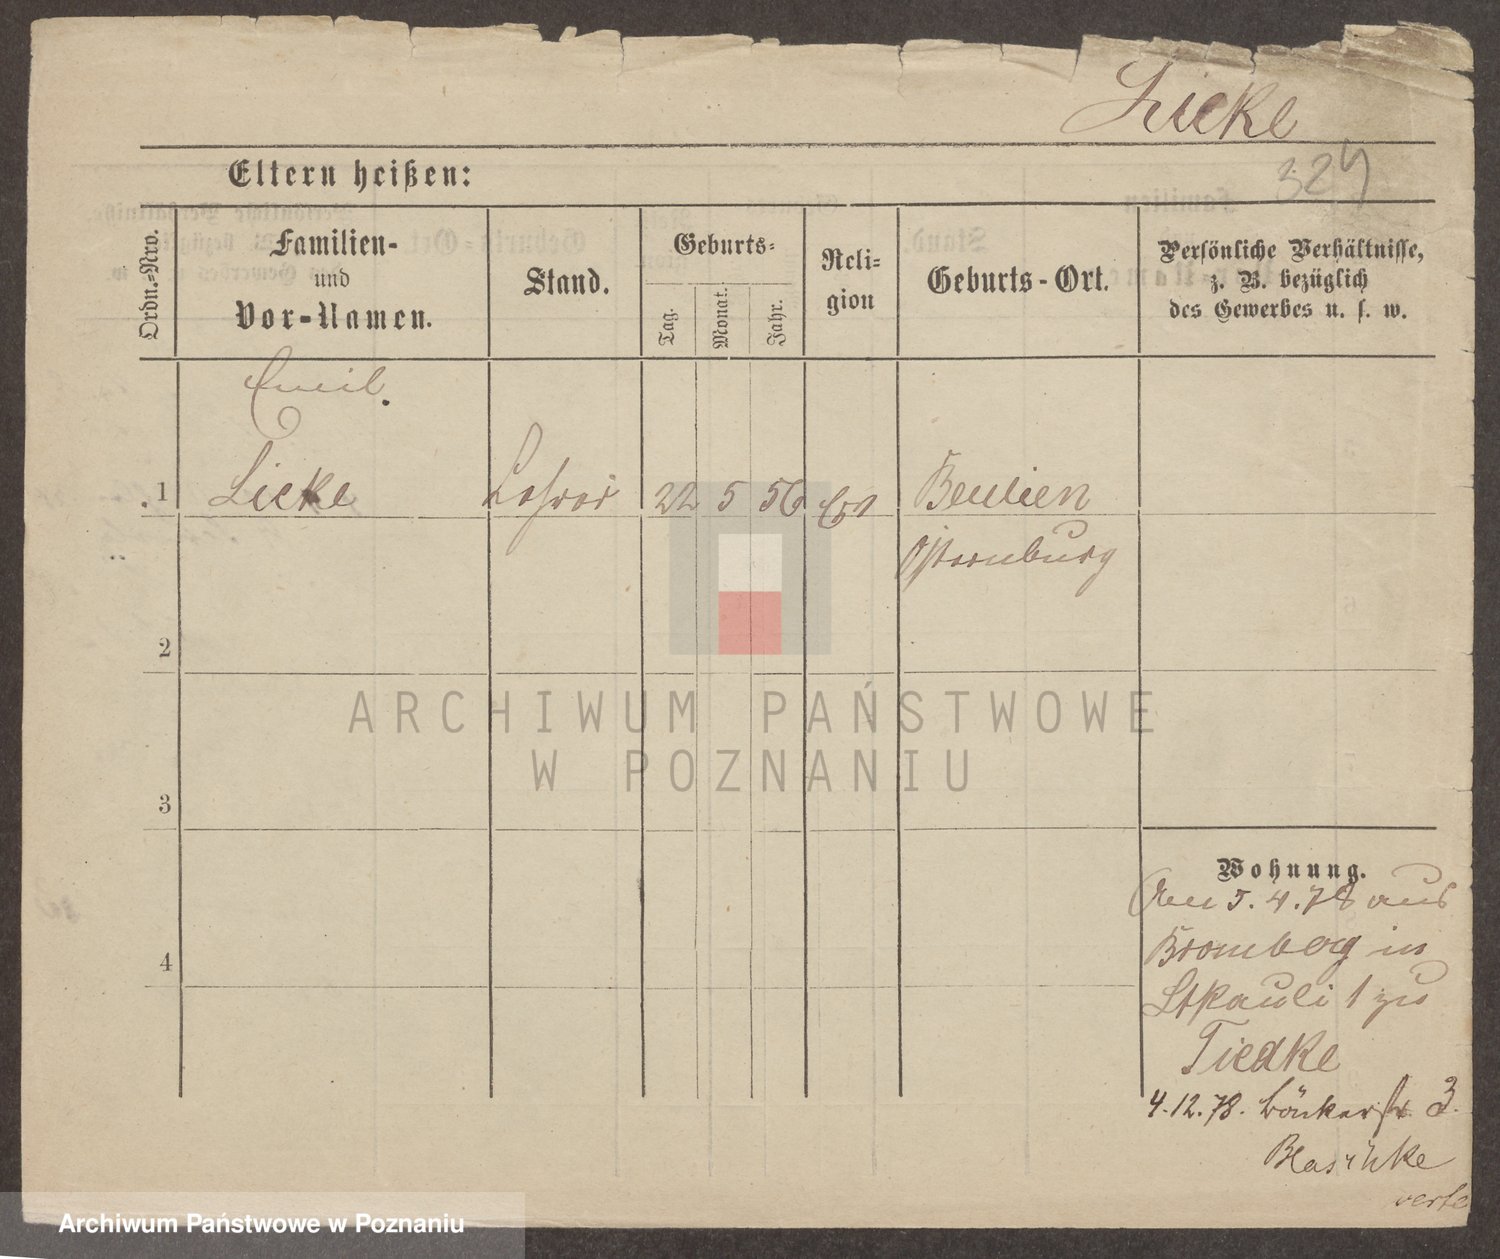 Licke
324
Eltern heißen:
Ordn.-Nro.
Familien-
und
Vor-Namen.
Stand.
Geburts-
Tag.
Monat.
Jahr.
Reli-
gion
Geburts-Ort.
Persönliche Verhältnisse,
z. B. bezüglich
des Gewerbes u. s. w.
Emil
1 Licke 22 5 56 Ev
2
3
4
Wohnung.
5.4.78 aus
Bromberg in
St Pauli 1 zu
Tiedke
4.12.78. Bäckerstr 3.
Blaschke
verte
ARCHIWUM PAŃSTWOWE
W POZNANIU
Archiwum Państwowe w Poznaniu